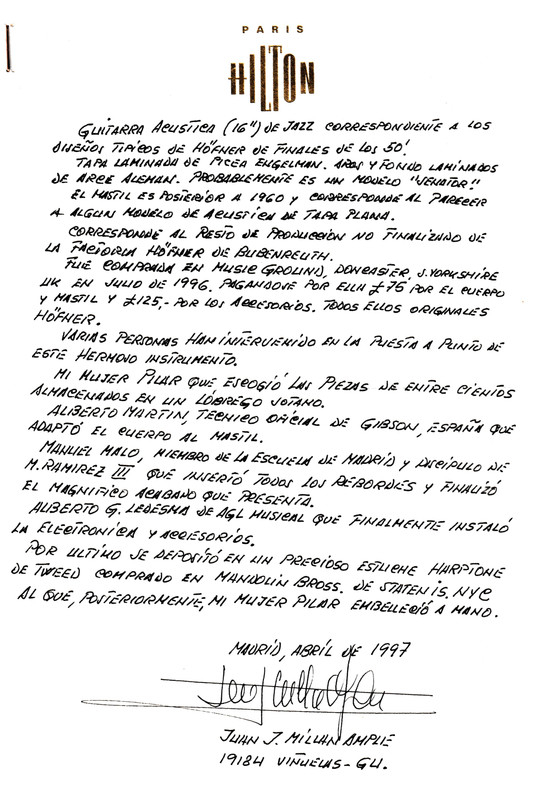 PARIS
HILTON
GUITARRA ACUSTICA (16") DE JAZZ CORRESPONDIENTE A LOS
DISEÑOS TIPICOS DE HÖFNER DE FINALES DE LOS 50!
TAPA LAMINADA DE PICEA ENGELMAN. AROS Y FONDO LAMINADOS
DE ARCE ALEMAN. PROBABLEMENTE ES UN MODELO "SENATOR!"
EL MASTIL ES POSTERIOR A 1960 Y CORRESPONDE AL PARECER
A ALGUN MODELO DE ACUSTICA DE TAPA PLANA.
CORRESPONDE AL RESTO DE PRODUCCION NO FINALIZADO DE
LA FACTORIA HÖFNER DE BUBENREUTH.
FUE COMPRADA EN MUSIC GROUND, DONCASTER, S. YORKSHIRE
UK EN JULIO DE 1996. PAGANDOSE POR ELLA £75 POR EL CUERPO
Y MASTIL Y £125,- POR LOS ACCESORIOS. TODOS ELLOS ORIGINALES
HÖFNER.
VARIAS PERSONAS HAN INTERVENIDO EN LA PUESTA A PUNTO DE
ESTE HERMOSO INSTRUMENTO.
MI MUJER PILAR QUE ESCOGIÓ LAS PIEZAS DE ENTRE CIENTOS
ALMACENADOS EN UN LÓBREGO SOTANO.
ALBERTO MARTIN, TECNICO OFICIAL DE GIBSON, ESPAÑA QUE
ADAPTÓ EL CUERPO AL MASTIL.
MANUEL MALO, MIEMBRO DE LA ESCUELA DE MADRID Y DISCIPULO DE
M. RAMIREZ III QUE INSERTÓ TODOS LOS REBORDES Y FINALIZÓ
EL MAGNIFICO ACABADO QUE PRESENTA.
ALBERTO G. LEDESMA DE AGL MUSICAL QUE FINALMENTE INSTALÓ
LA ELECTRONICA Y ACCESORIOS.
POR ULTIMO SE DEPOSITÓ EN UN PRECIOSO ESTUCHE HARPTONE
DE TWEED COMPRADO EN MANDOLIN BROSS. DE STATEN IS. NYC
AL QUE, POSTERIORMENTE, MI MUJER PILAR EMBELLECIÓ A MANO.
MADRID, ABRIL DE 1997
JUAN J. MILLAN AMPLIE
19184 VIÑUELAS - GU.